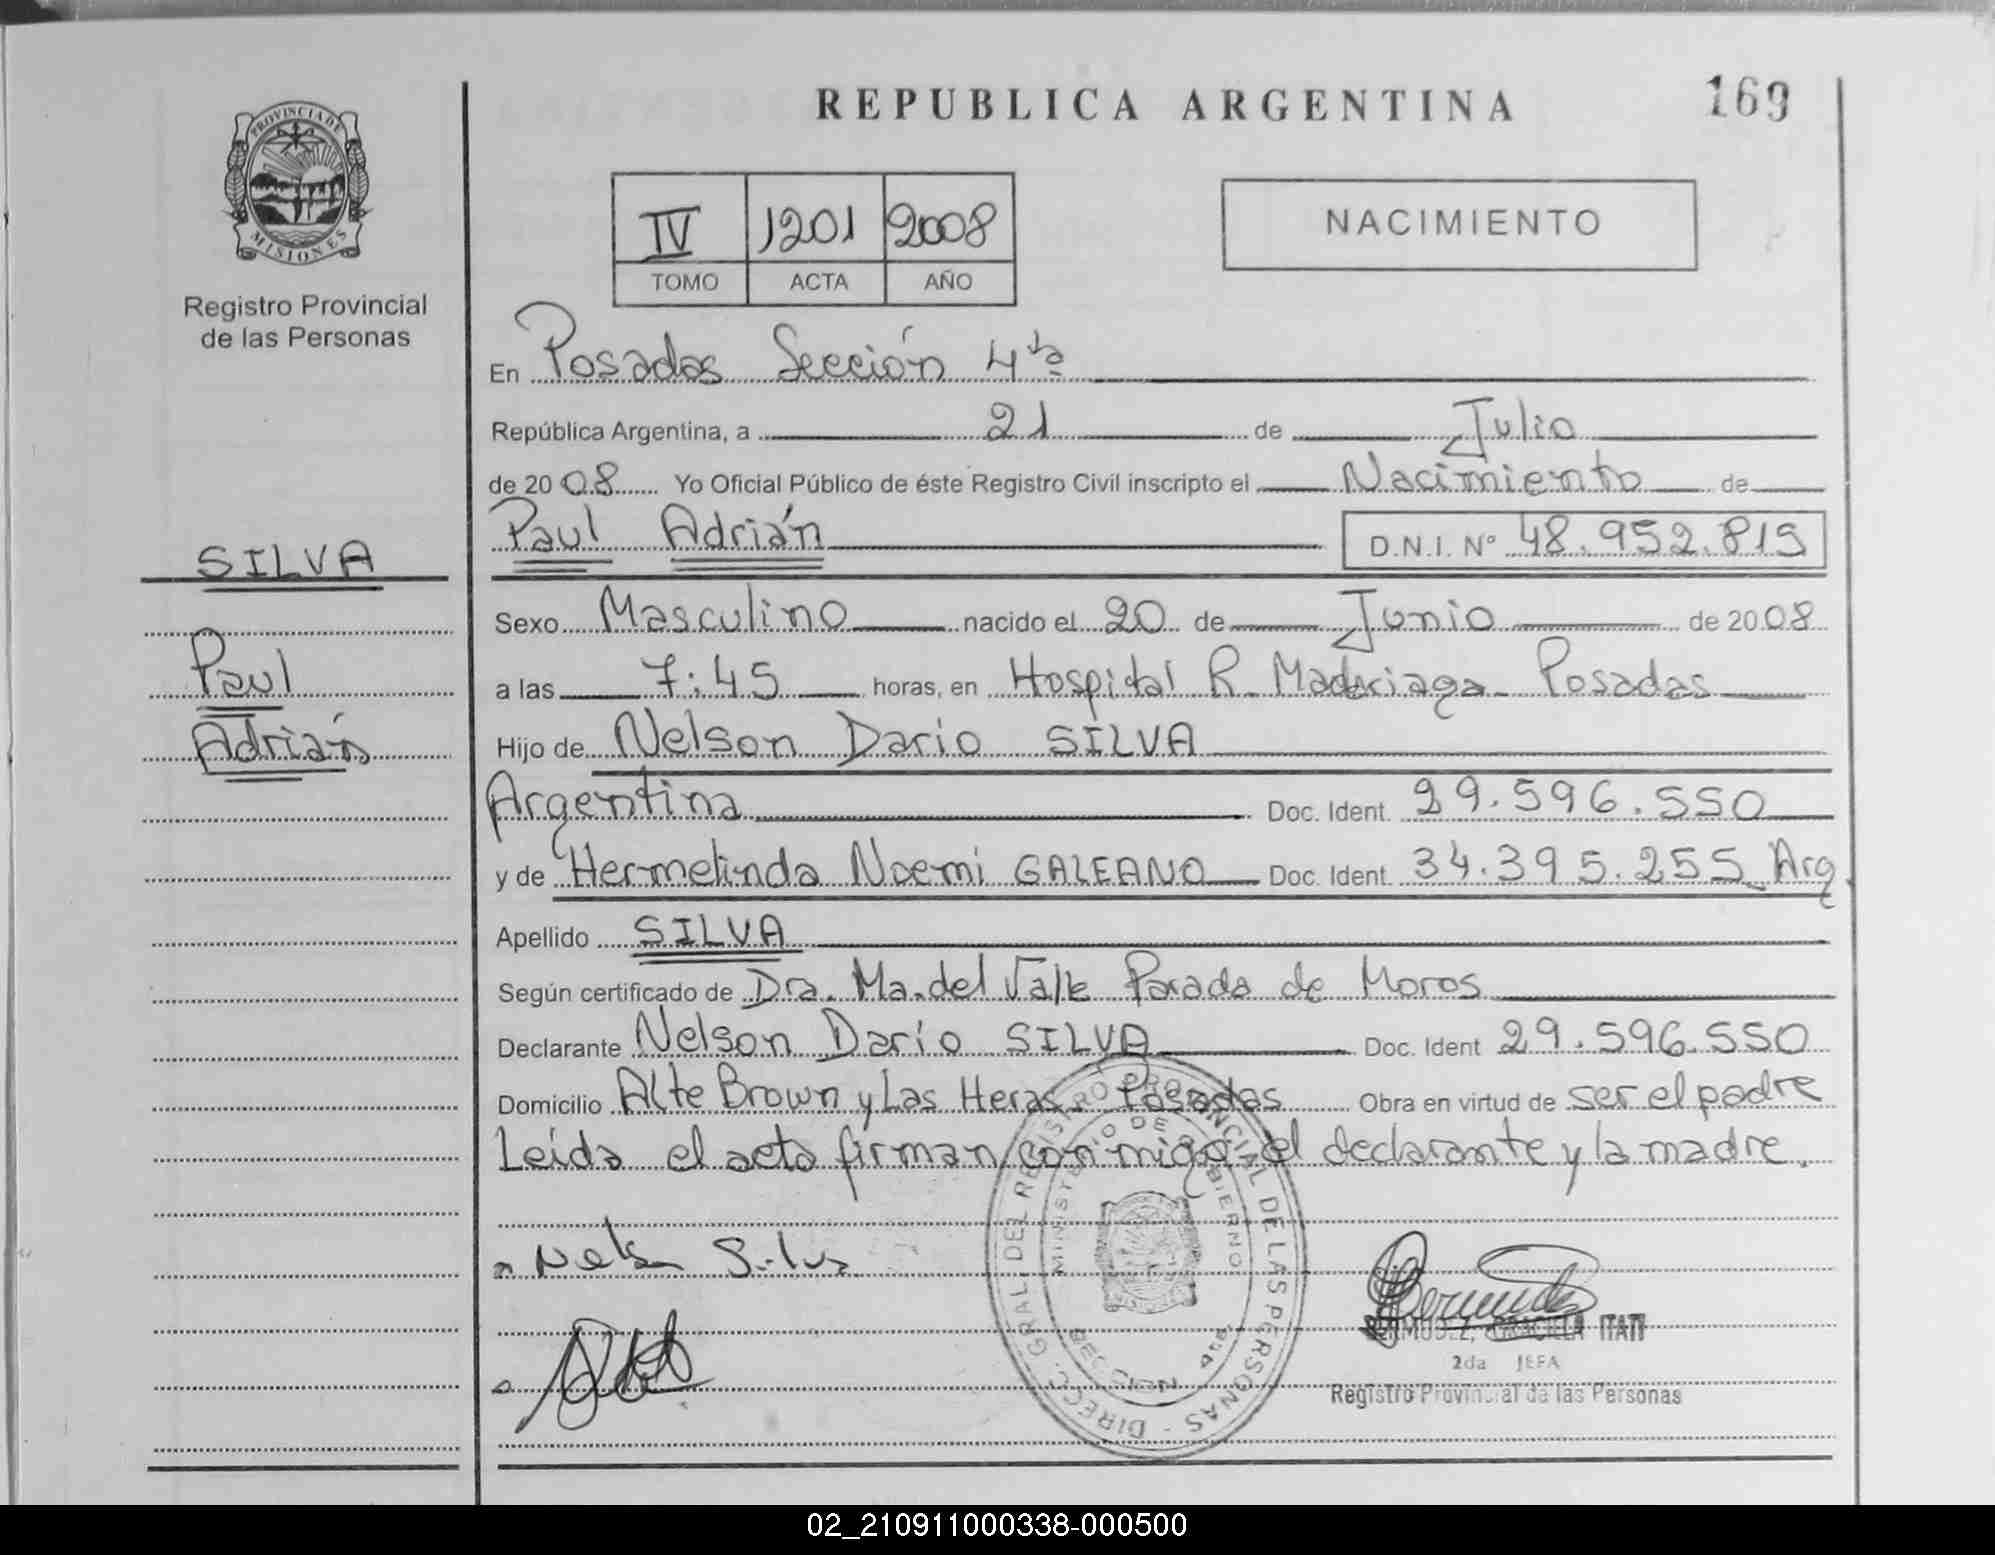 REPUBLICA ARGENTINA
169
PROVINCIA DE
MISIONES
Registro Provincial
de las Personas
IV 1201 2008
TOMO ACTA AÑO
NACIMIENTO
En Posadas Sección 4ta
República Argentina, a 21 de Julio
de 2008 Yo Oficial Público de éste Registro Civil inscripto el Nacimiento de
Paul Adrián D.N.I. Nº 48.952.815
SILVA
Paul
Adrián
Sexo Masculino nacido el 20 de Junio de 2008
a las 7:45 horas, en Hospital R. Madariaga Posadas
Hijo de Nelson Dario SILVA
Argentina Doc. Ident. 29.596.550
y de Hermelinda Noemi GALEANO Doc. Ident. 34.395.255 Arg
Apellido SILVA
Según certificado de Dra. Ma. del Valle Parada de Moros
Declarante Nelson Darío SILVA Doc. Ident 29.596.550
Domicilio Alte Brown y Las Heras. Posadas Obra en virtud de ser el padre
Leída el acta firman conmigo el declarante y la madre.
DIRECC. GRAL. DEL REGISTRO PROVINCIAL DE LAS PERSONAS -
MINISTERIO DE GOBIERNO
Nelson Silva
BERMUDEZ, GRACIELA ITATI
2da JEFA
Registro Provincial de las Personas
02_210911000338-000500